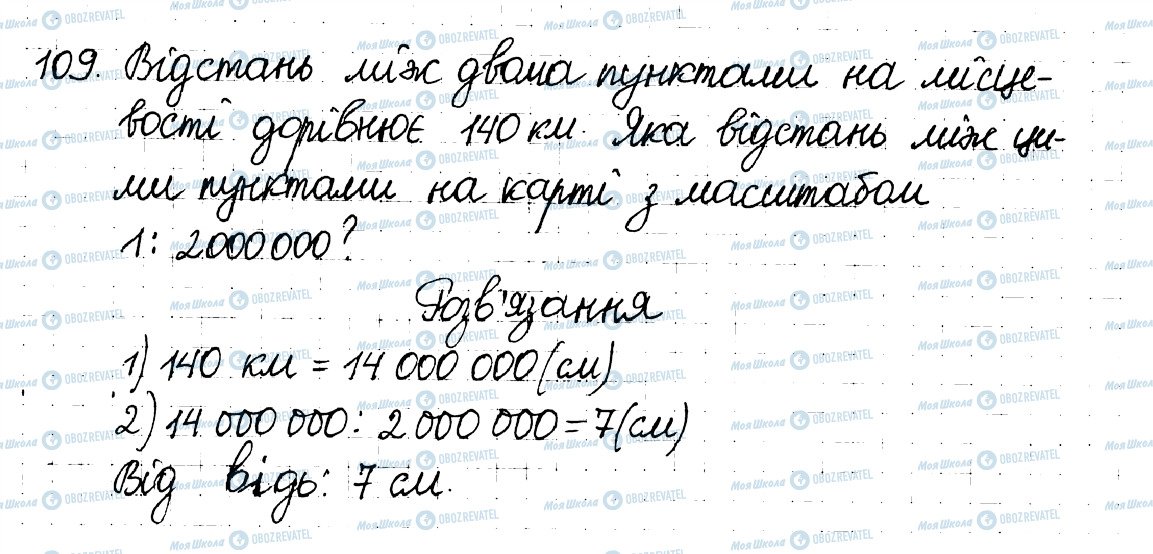 109. Відстань між двома пунктами на місце-
вості дорівнює 140 км. Яка відстань між ци-
ми пунктами на карті з масштабом
1: 2000000?
Розв'язання
1) 140 км = 14 000 000 (см)
2) 14 000 000 : 2 000 000 = 7 (см)
Від відь: 7 см.